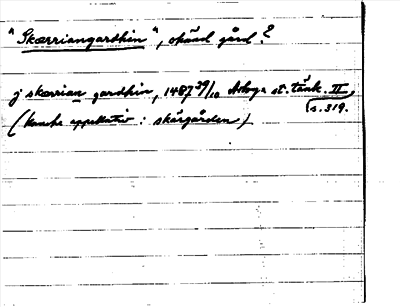 "Skærriangardhin", okänd gård?
j skærrian gardhin, 1487 29/10 Arboga st. tänk. II
s. 319.
(kanske appellativ: skärgården)